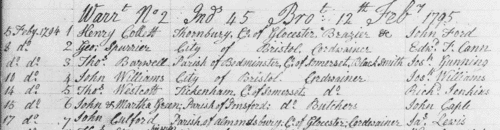 Warr.t No 2 Ind.s 45 Bro.t 12th Feb.y 1795
5 Feby. 1794 1 Henry Collett Thornbury, C.o of Glocester Brazier &c John Ford
8 d.o 2 Geo. Spurrier City of Bristol Cordwainer Edw.d T. Cann
d.o d.o 3 Tho.s Barwell Parish of Bedminster, C.o of Somerset, Black Smith Jos.h Gunning
10 d.o 4 John Williams City of Bristol Cordwainer Jos.h Williams
14 d.o 5 Tho.s Westcott Tickenham, C. of Somerset d.o Rich.d Jenkins
15 d.o 6 John & Martha Green; Parish of d.o Butchers John Caple
17 d.o 7 John Parish of Almondsbury; C. of Glocester; Cordwainer Ja.s Lewis